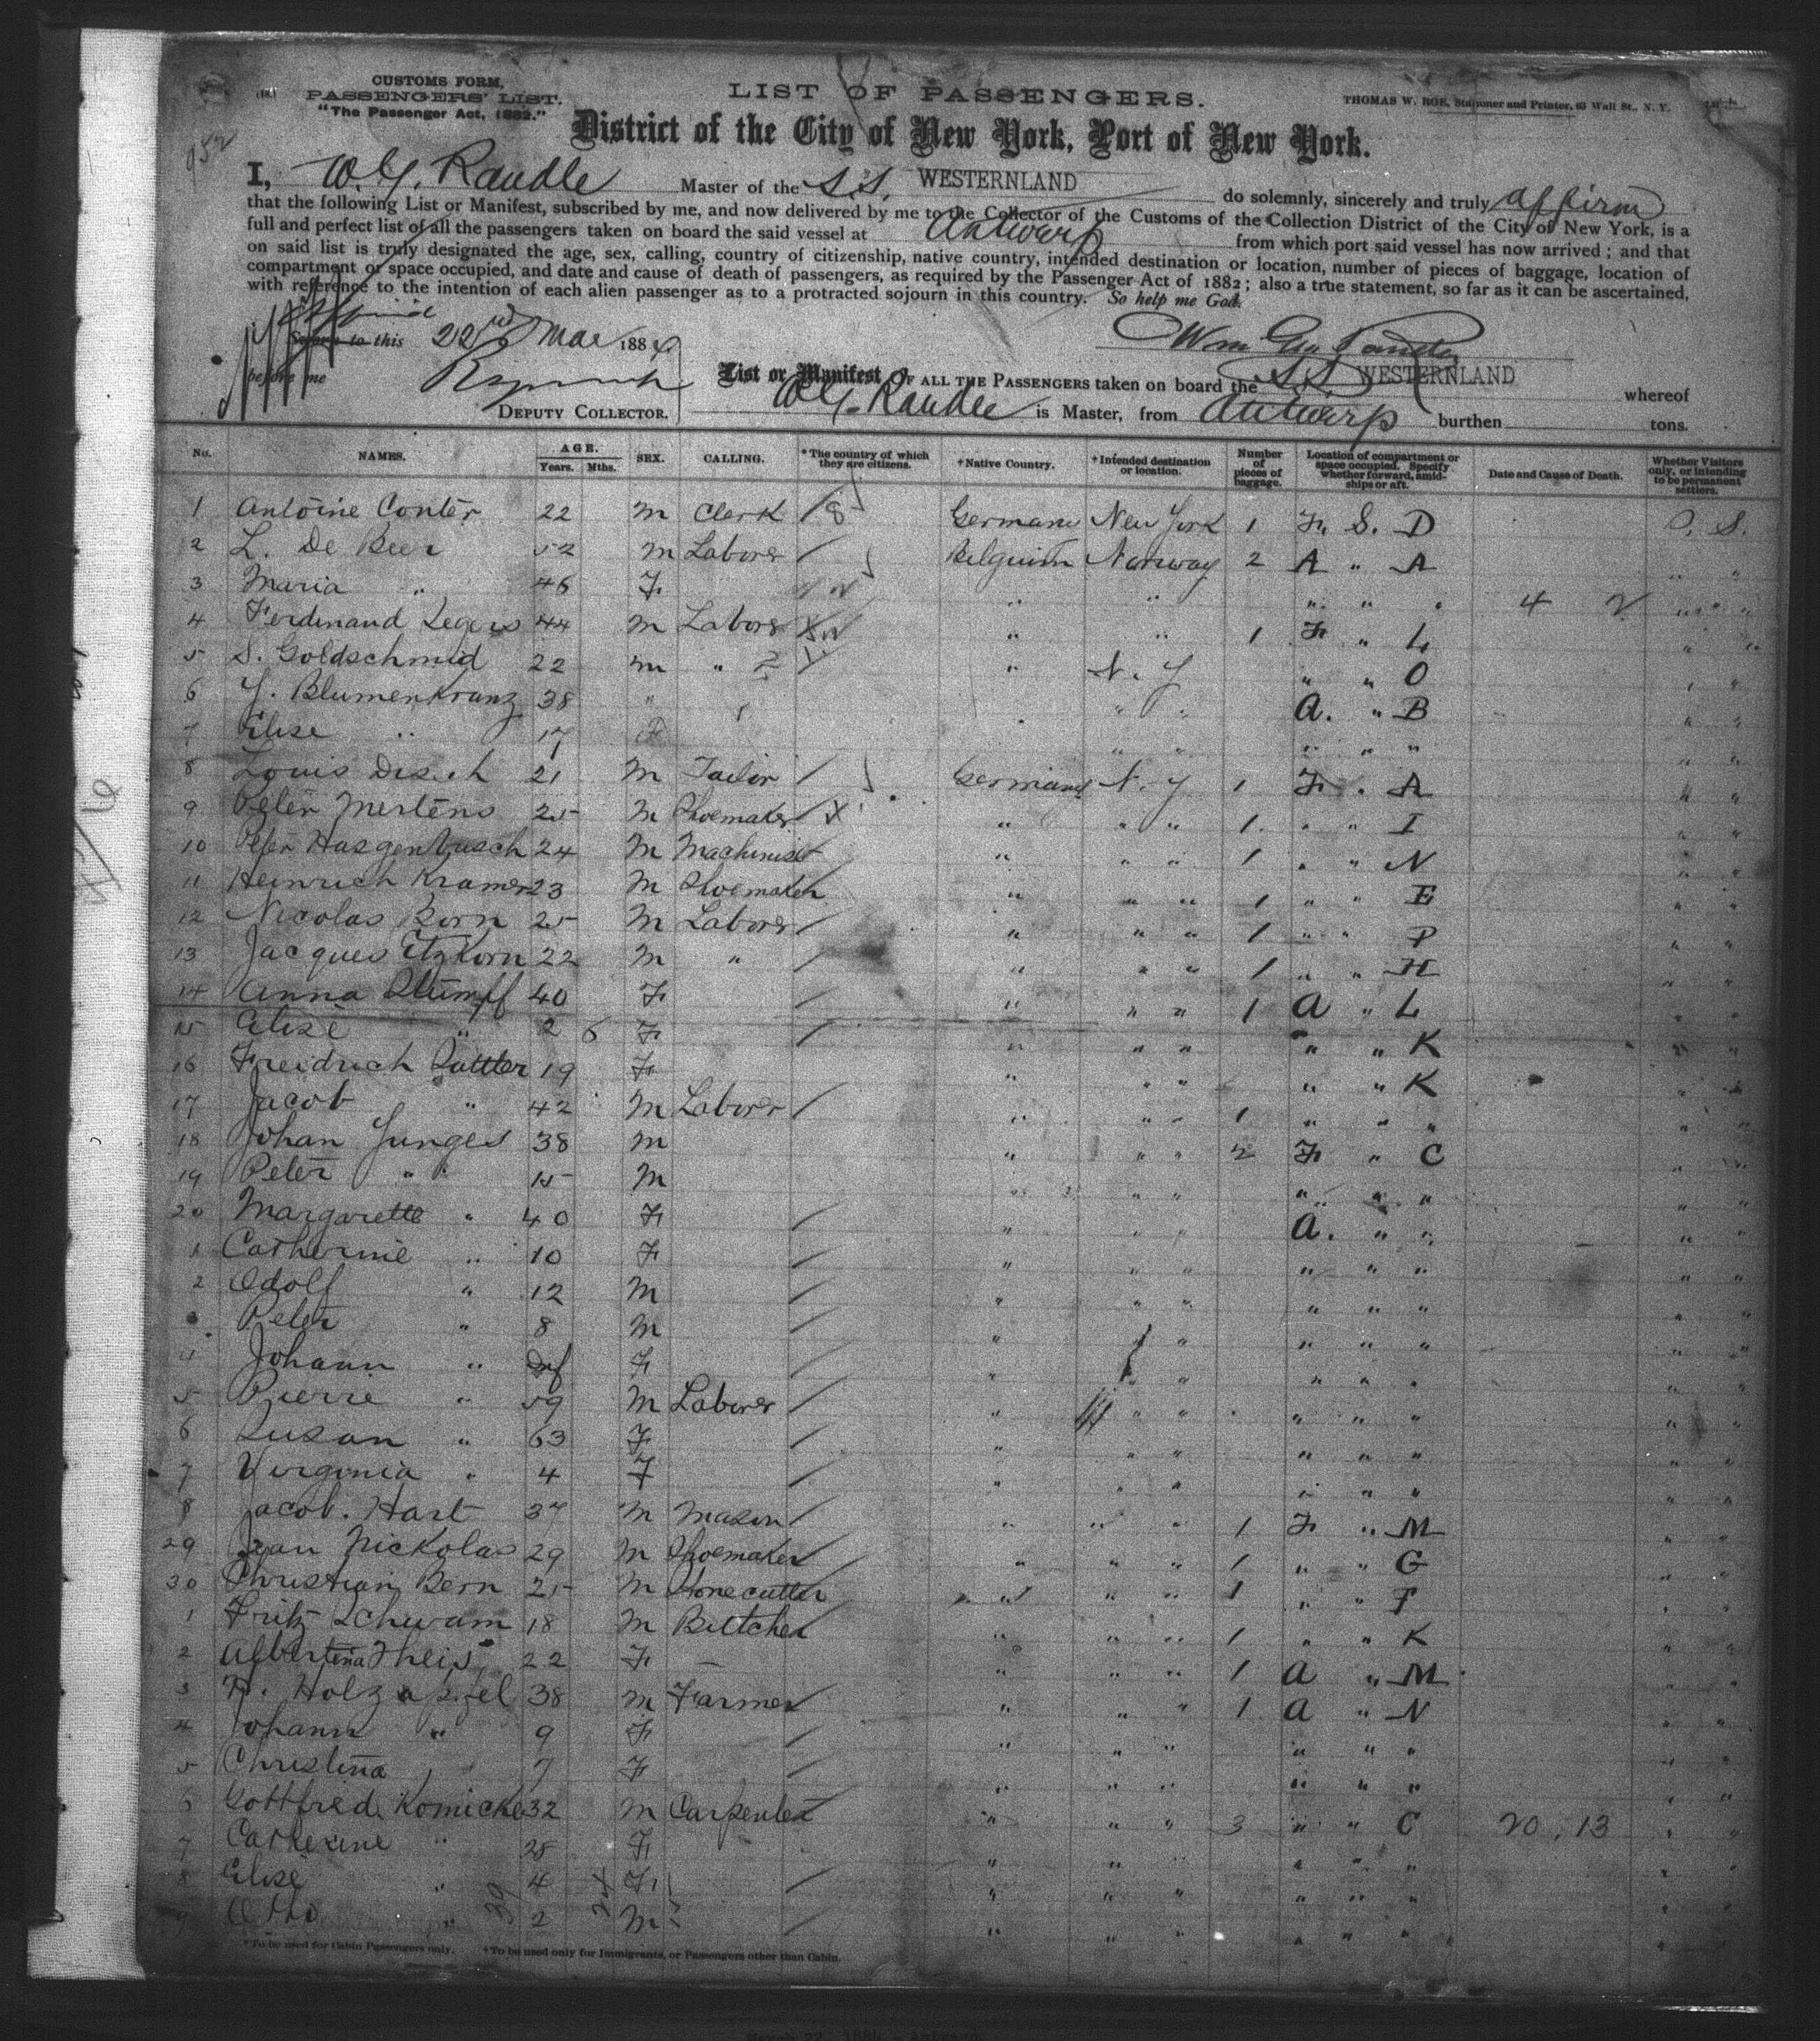 CUSTOMS FORM,
PASSENGERS' LIST.
"The Passenger Act, 1882."
LIST OF PASSENGERS.
THOMAS W. ROE, Stationer and Printer, 63 Wall St., N. Y.
952
District of the City of New York, Port of New York.
I, W. G. Randle Master of the S.S. WESTERNLAND do solemnly, sincerely and truly affirm
that the following List or Manifest, subscribed by me, and now delivered by me to the Collector of the Customs of the Collection District of the City of New York, is a
full and perfect list of all the passengers taken on board the said vessel at Antwerp from which port said vessel has now arrived ; and that
on said list is truly designated the age, sex, calling, country of citizenship, native country, intended destination or location, number of pieces of baggage, location of
compartment or space occupied, and date and cause of death of passengers, as required by the Passenger Act of 1882 ; also a true statement, so far as it can be ascertained,
with reference to the intention of each alien passenger as to a protracted sojourn in this country. So help me God.
Sworn to this 22 Mar 1884
before me
DEPUTY COLLECTOR.
List or Manifest OF ALL THE PASSENGERS taken on board the S.S. WESTERNLAND whereof
W. G. Randle is Master, from Antwerp burthen tons.
No. NAMES. AGE. Years. Mths. SEX. CALLING. *The country of which they are citizens. †Native Country. †Intended destination or location. Number of pieces of baggage. Location of compartment or space occupied. Specify whether forward, amidships or aft. Date and Cause of Death. Whether Visitors only, or intending to be permanent settlers.
1 Antoine Conter 22 M Clerk Germany New York 1 F. S. D P. S.
2 L. De Beer 52 M Laborer Belguim Norway 2 A " A " "
3 Maria " 46 F " " " " " 4 2 " "
4 Ferdinand Legers 44 M Laborer " " 1 F " L " "
5 S. Goldschmid 22 M " " N. Y " " O " "
6 Y. Blumenkranz 38 " " " A. " B " "
7 Elise " 17 F " " " " " " "
8 Louis Disch 21 M Tailor Germany N. Y 1 F " A " "
9 Peter Mertens 25 M Shoemaker " " " 1 " " I " "
10 Peter Hasgenbusch 24 M Machinist " " " 1 " " N " "
11 Heinrich Kramer 23 M Shoemaker " " " 1 " " E " "
12 Nicolas Born 25 M Laborer " " " 1 " " P " "
13 Jacques Etzkorn 22 M " " " " 1 " " H " "
14 Anna Stumpff 40 F " " " 1 A " L " "
15 Elise " 2 6 F " " " " " K " "
16 Freidrich Sattler 19 F " " " " " K " "
17 Jacob " 42 M Laborer " " " 1 " " " " "
18 Johan Junges 38 M " " " 2 F " C " "
19 Peter " 15 M " " " " " " " "
20 Margarette " 40 F " " " A. " " " "
1 Catherine " 10 F " " " " " " " "
2 Adolf " 12 M " " " " " " " "
Peter " 8 M " " " " " " " "
4 Johann " Inf F " " " " " " " "
5 Pierre " 59 M Laborer " " " " " " " "
6 Susan " 63 F " " " " " " " "
7 Virginia " 4 F " " " " " " " "
8 Jacob. Hart 37 M Mason " " " 1 F " M " "
29 Jean Nickolas 29 M Shoemaker " " " 1 " " G " "
30 Christian Bern 25 M Stonecutter " " " 1 " " F " "
1 Fritz Schwam 18 M Buttcher " " " 1 " " K " "
2 Albertina Theis 22 F — " " " 1 A " M " "
3 H. Holzapfel 38 M Farmer " " " 1 A " N " "
4 Johann " 9 F " " " " " " " "
5 Christina " 7 F " " " " " " " "
6 Gottfried Komicke 32 M Carpenter " " " 3 " " C 20, 13 " "
7 Catherine " 28 F " " " " " " " "
8 Elise " 4 F " " " " " " " "
9 Otto " 2 M " " " " " " " "
*To be used for Cabin Passengers only. †To be used only for Immigrants, or Passengers other than Cabin.